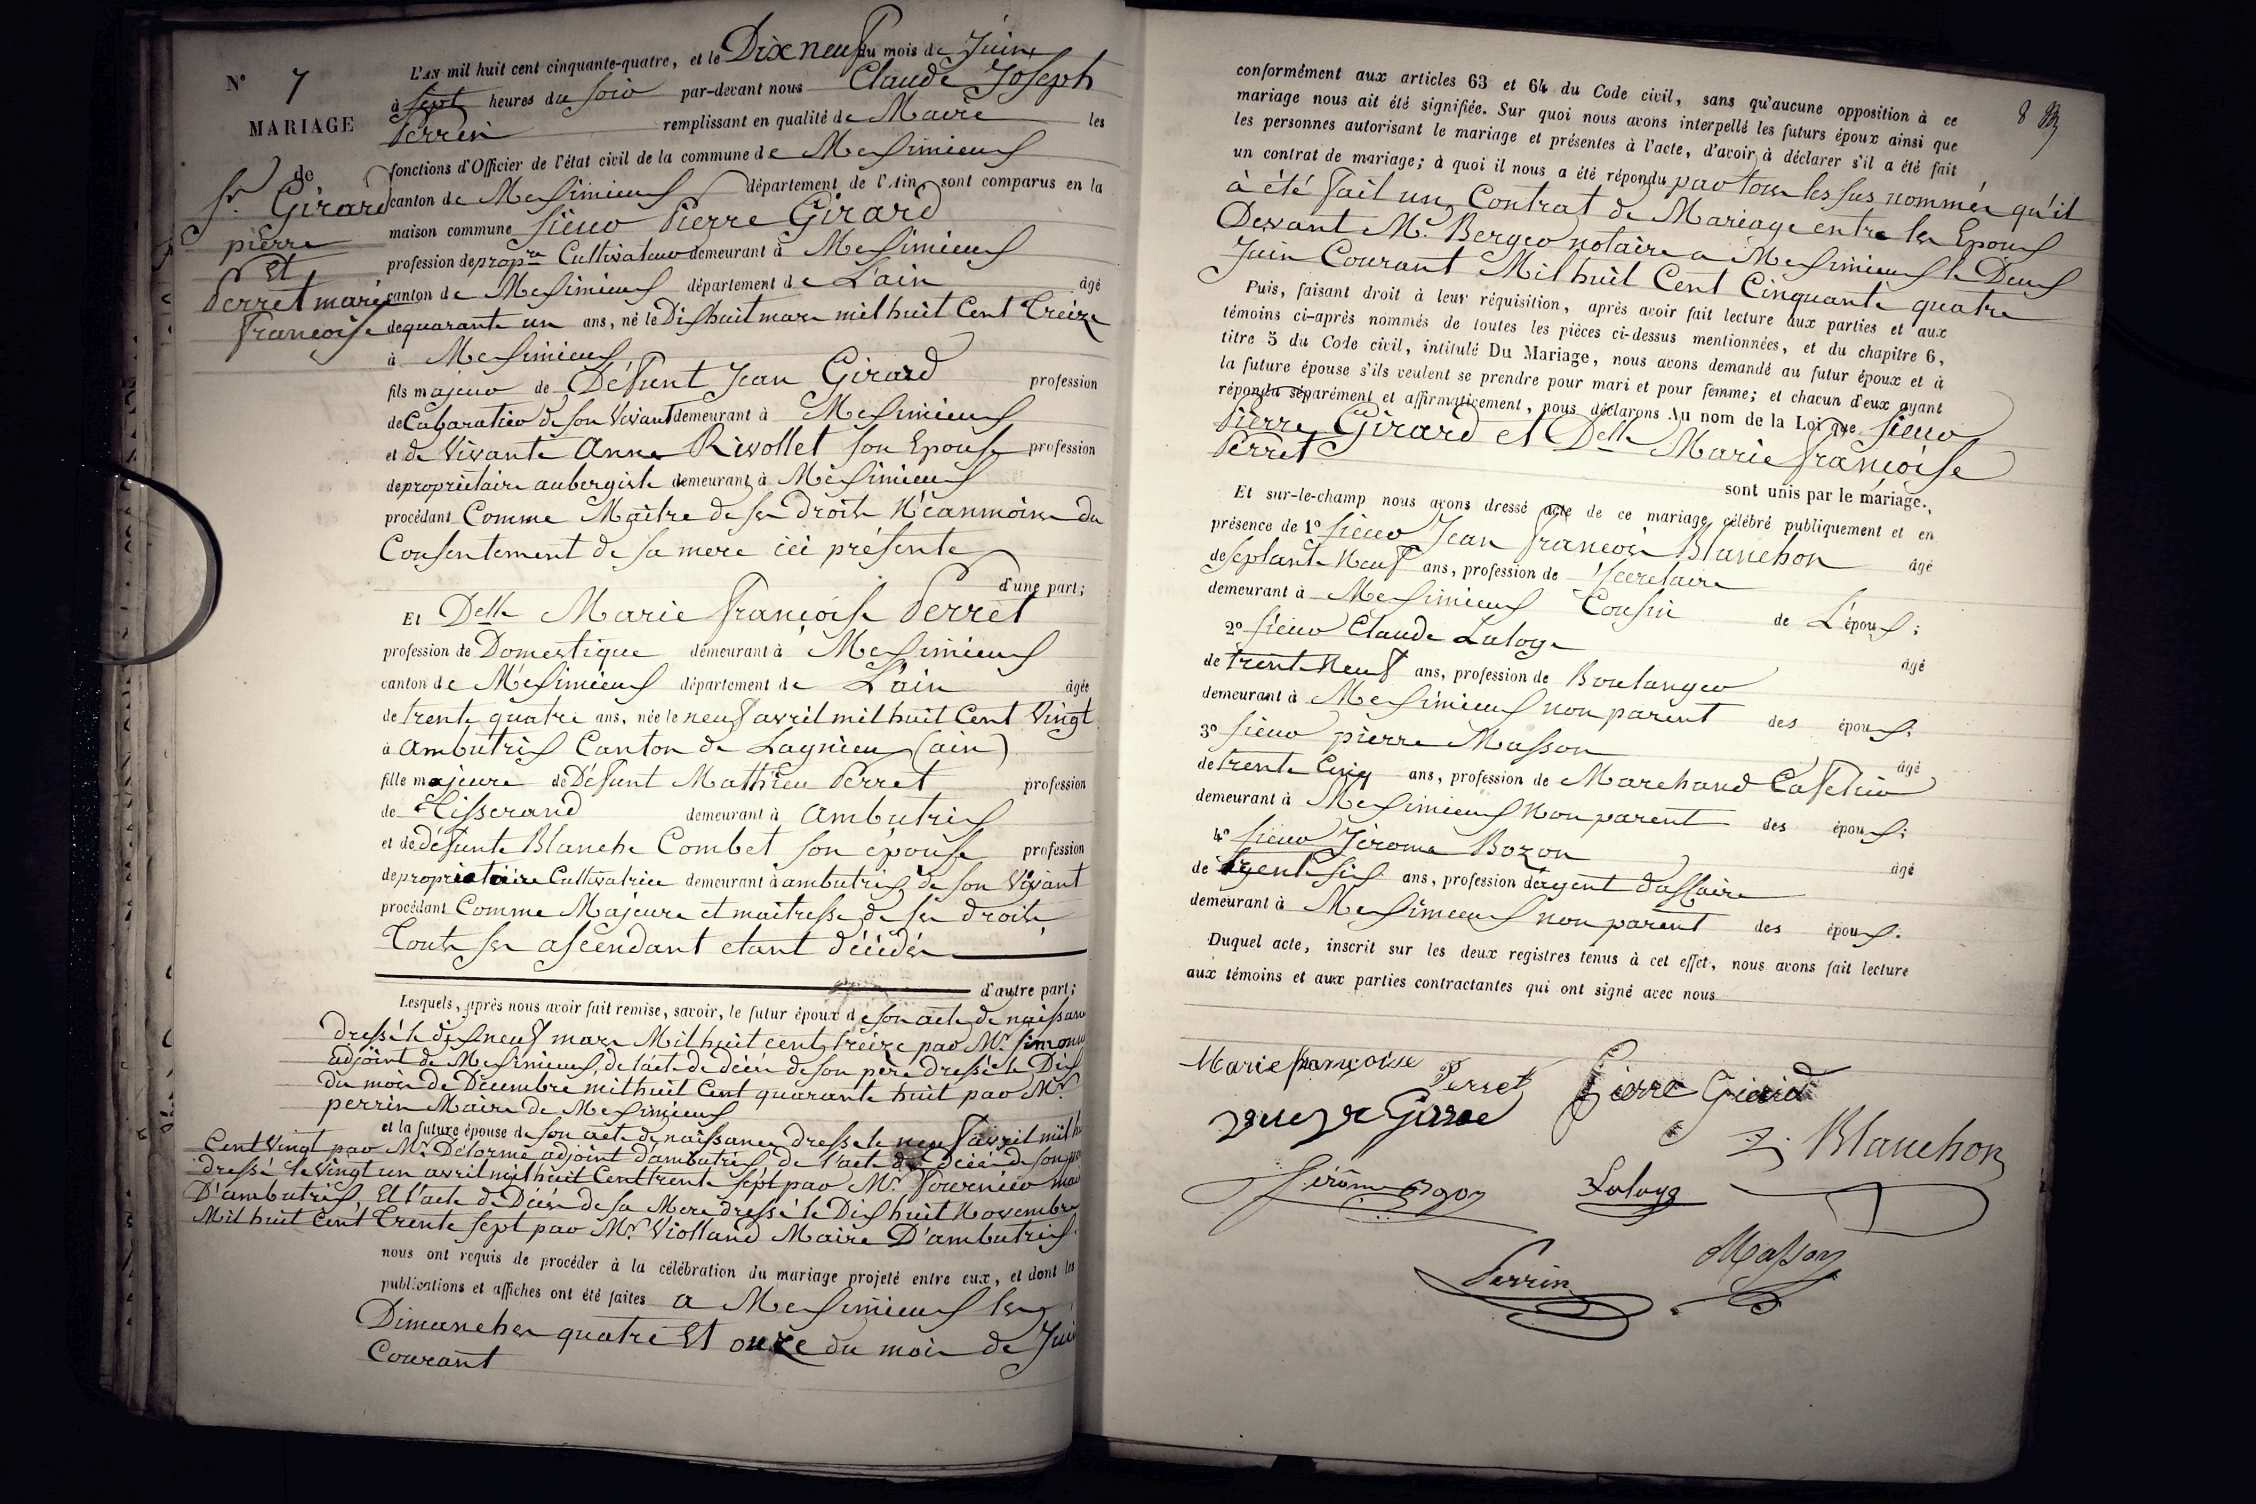 N° 7
MARIAGE
de
Sr. Girard
pierre
Et
Perret marie
francoise
L'AN mil huit cent cinquante-quatre, et le Dix neuf du mois de Juin
à sept heures du soir par-devant nous Claude Joseph
Perrin remplissant en qualité de Maire les
fonctions d'Officier de l'état civil de la commune de Meximieux
canton de Meximieux département de l'Ain sont comparus en la
maison commune sieur Pierre Girard
profession de propre Cultivateur demeurant à Meximieux
canton de Meximieux département de L'ain âgé
de quarante un ans, né le Dixhuit mars mil huit Cent Treize
à Meximieux
fils majeur de Défunt Jean Girard profession
de Cabaratier de son Vivant demeurant à Meximieux
et de Vivante Anne Rivollet son Epouse profession
de propriètaire aubergiste demeurant à Meximieux
procédant Comme Maître de ses droits Néanmoins du
Consentement de sa mere ici présente
d'une part;
Et Delle Marie françoise Perret
profession de Domestique demeurant à Meximieux
canton de Méximieux département de L'ain âgée
de trente quatre ans, née le neuf avril mil huit Cent Vingt
à Ambutrix Canton de Lagnieu (ain)
fille majeure de Défunt Mathieu Perret profession
de Tisserand demeurant à Ambutrix
et de défunte Blanche Combet son épouse profession
de propriétaire Cultivatrice demeurant à ambutrix de son Vivant
procédant Comme Majeure et maitresse de ses droits
Touts ses ascendant etant décédés
d'autre part;
Lesquels, après nous avoir fait remise, savoir, le futur époux de son acte de naissan
dressé le dixneuf mars Mil huit cent treize par Mr. Simon
adjoint de Meximieux, de l'acte de décès de son père dressé le Dix
du mois de Decembre mil huit Cent quarante huit par Mr.
perrin Maire de Meximieux
et la future épouse de son acte de naissance dressé le neuf avril mil h
Cent Vingt par Mr. Délorme adjoint d'ambutrix de l'acte de décès de son
dressé le Vingt un avril mil huit Cent trente sépt par Mr. Fournier mai
D'ambutrix Et l'acte de Décès de sa Mere dressé le Dix huit Novembre
Mil huit Cent Trente sept par Mr. Violland Maire D'ambutrix
nous ont requis de procéder à la célébration du mariage projeté entre eux, et dont les
publications et affiches ont été faites a Meximieux les
Dimanches quatre Et onze du mois de Jui
Courant
8
conformément aux articles 63 et 64 du Code civil, sans qu'aucune opposition à ce
mariage nous ait été signifiée. Sur quoi nous avons interpellé les futurs époux ainsi que
les personnes autorisant le mariage et présentes à l'acte, d'avoir à déclarer s'il a été fait
un contrat de mariage; à quoi il nous a été répondu par tous les sus nommés qu'il
à été fait un Contrat de Mariage entre les Epoux
Devant Mr. Berger notaire a Meximieux le Deux
Juin Courant Mil huit Cent Cinquante quatre
Puis, faisant droit à leur réquisition, après avoir fait lecture aux parties et aux
témoins ci-après nommés de toutes les pièces ci-dessus mentionnées, et du chapitre 6,
titre 5 du Code civil, intitulé Du Mariage, nous avons demandé au futur époux et à
la future épouse s'ils veulent se prendre pour mari et pour femme; et chacun d'eux ayant
répondu séparément et affirmativement, nous déclarons Au nom de la Loi que sieur
Pierre Girard et Delle Marie françoise
Perret
sont unis par le mariage.
Et sur-le-champ nous avons dressé acte de ce mariage célébré publiquement et en
présence de 1° sieur Jean francois Blanchon âgé
de septante Neuf ans, profession de Secretaire
demeurant à Meximieux Cousin de L'époux;
2° sieur Claude Laloge
de trente Neuf ans, profession de Boulanger âgé
demeurant à Meximieux non parent des époux;
3° sieur pierre Masson
de trente Cinq ans, profession de Marchand Cafetier âgé
demeurant à Meximieux Non parent des époux;
4° sieur Jérome Bozon
de trente six ans, profession d'agent daffaire âgé
demeurant à Meximieux non parent des époux.
Duquel acte, inscrit sur les deux registres tenus à cet effet, nous avons fait lecture
aux témoins et aux parties contractantes qui ont signé avec nous
Marie françoise
Perret
Pierre Girard
J. Blanchon
Jérôme Bozon
Laloge
Masson
Perrin